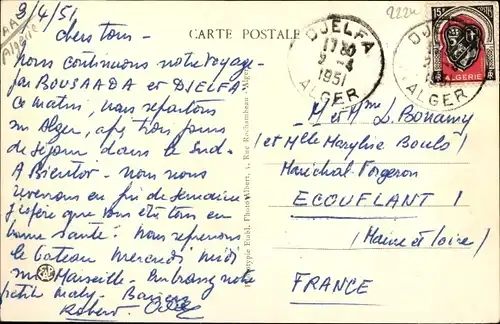 9/4/51
chers tous -
nous continuons notre voyage -
par BOUSAADA et DJELFA
Ce matin, nous repartons
sur Alger, après trois jours
de séjour dans le Sud -
A Bientôt - nous nous
reverrons en fin de semaine
J'espère que vous êtes tous en
bonne santé. Nous reprenons
le bateau mercredi midi
sur Marseille - Embrassez notre
petite
Robert
CARTE POSTALE
Phototypie Etabl. Photo Albert, 4, Rue Rochambeau - Alger
DJELFA
1730
9-4
1951
ALGER
DJELFA
ALGER
15F
ALGERIE
222N
M et Mme L. Bonamy
(et Melle Maryline Bouls)
Maréchal-Forgeron
ECOUFLANT
(Maine et Loire)
FRANCE